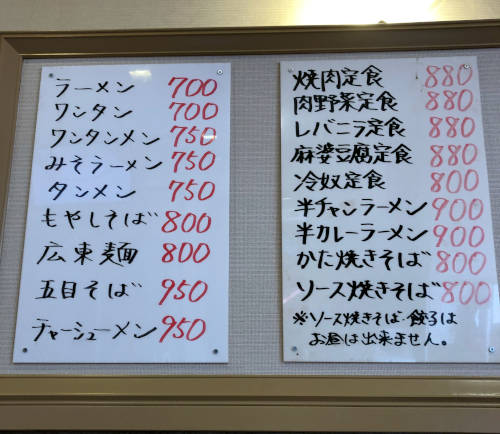 ラーメン 700
ワンタン 700
ワンタンメン 750
みそラーメン 750
タンメン 750
もやしそば 800
広東麺 800
五目そば 950
チャーシューメン 950
焼肉定食 880
肉野菜定食 880
レバニラ定食 880
麻婆豆腐定食 880
冷奴定食 800
半チャンラーメン 900
半カレーラーメン 900
かた焼きそば 800
ソース焼きそば 800
※ソース焼きそば・餃子は
お昼は出来ません。